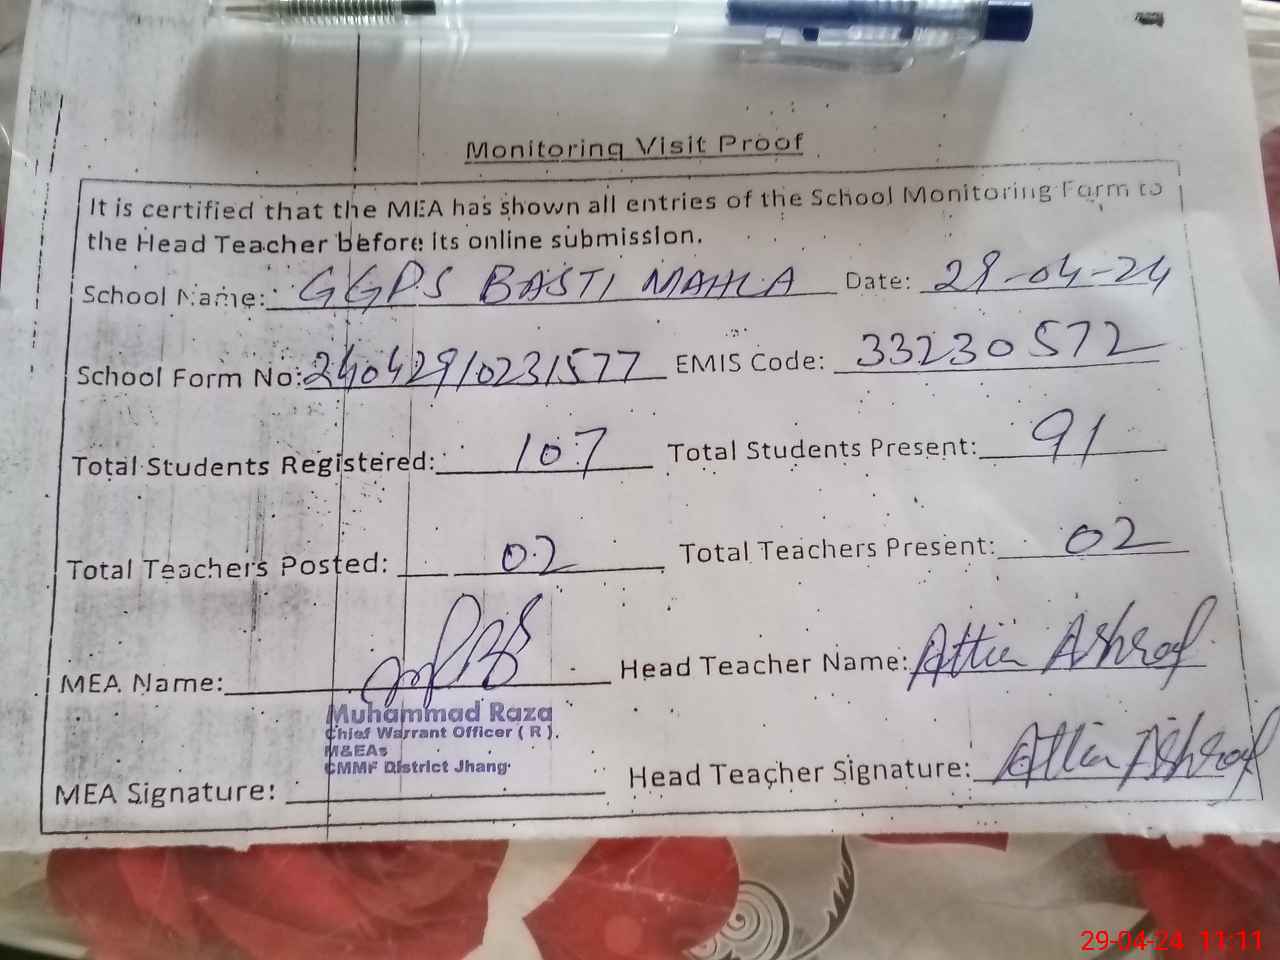 Monitoring Visit Proof
It is certified that the MEA has shown all entries of the School Monitoring Form to
the Head Teacher before its online submission.
School Name: GGPS BASTI MAHLA Date: 29-04-24
School Form No: 24042910231577 EMIS Code: 33230572
Total Students Registered: 107 Total Students Present: 91
Total Teachers Posted: 02 Total Teachers Present: 02
MEA Name: Head Teacher Name: Attia Ashraf
Muhammad Raza
Chief Warrant Officer ( R ).
M&EAs
CMMF District Jhang.
MEA Signature: Head Teacher Signature: Attia Ashraf
29-04-24 11:11